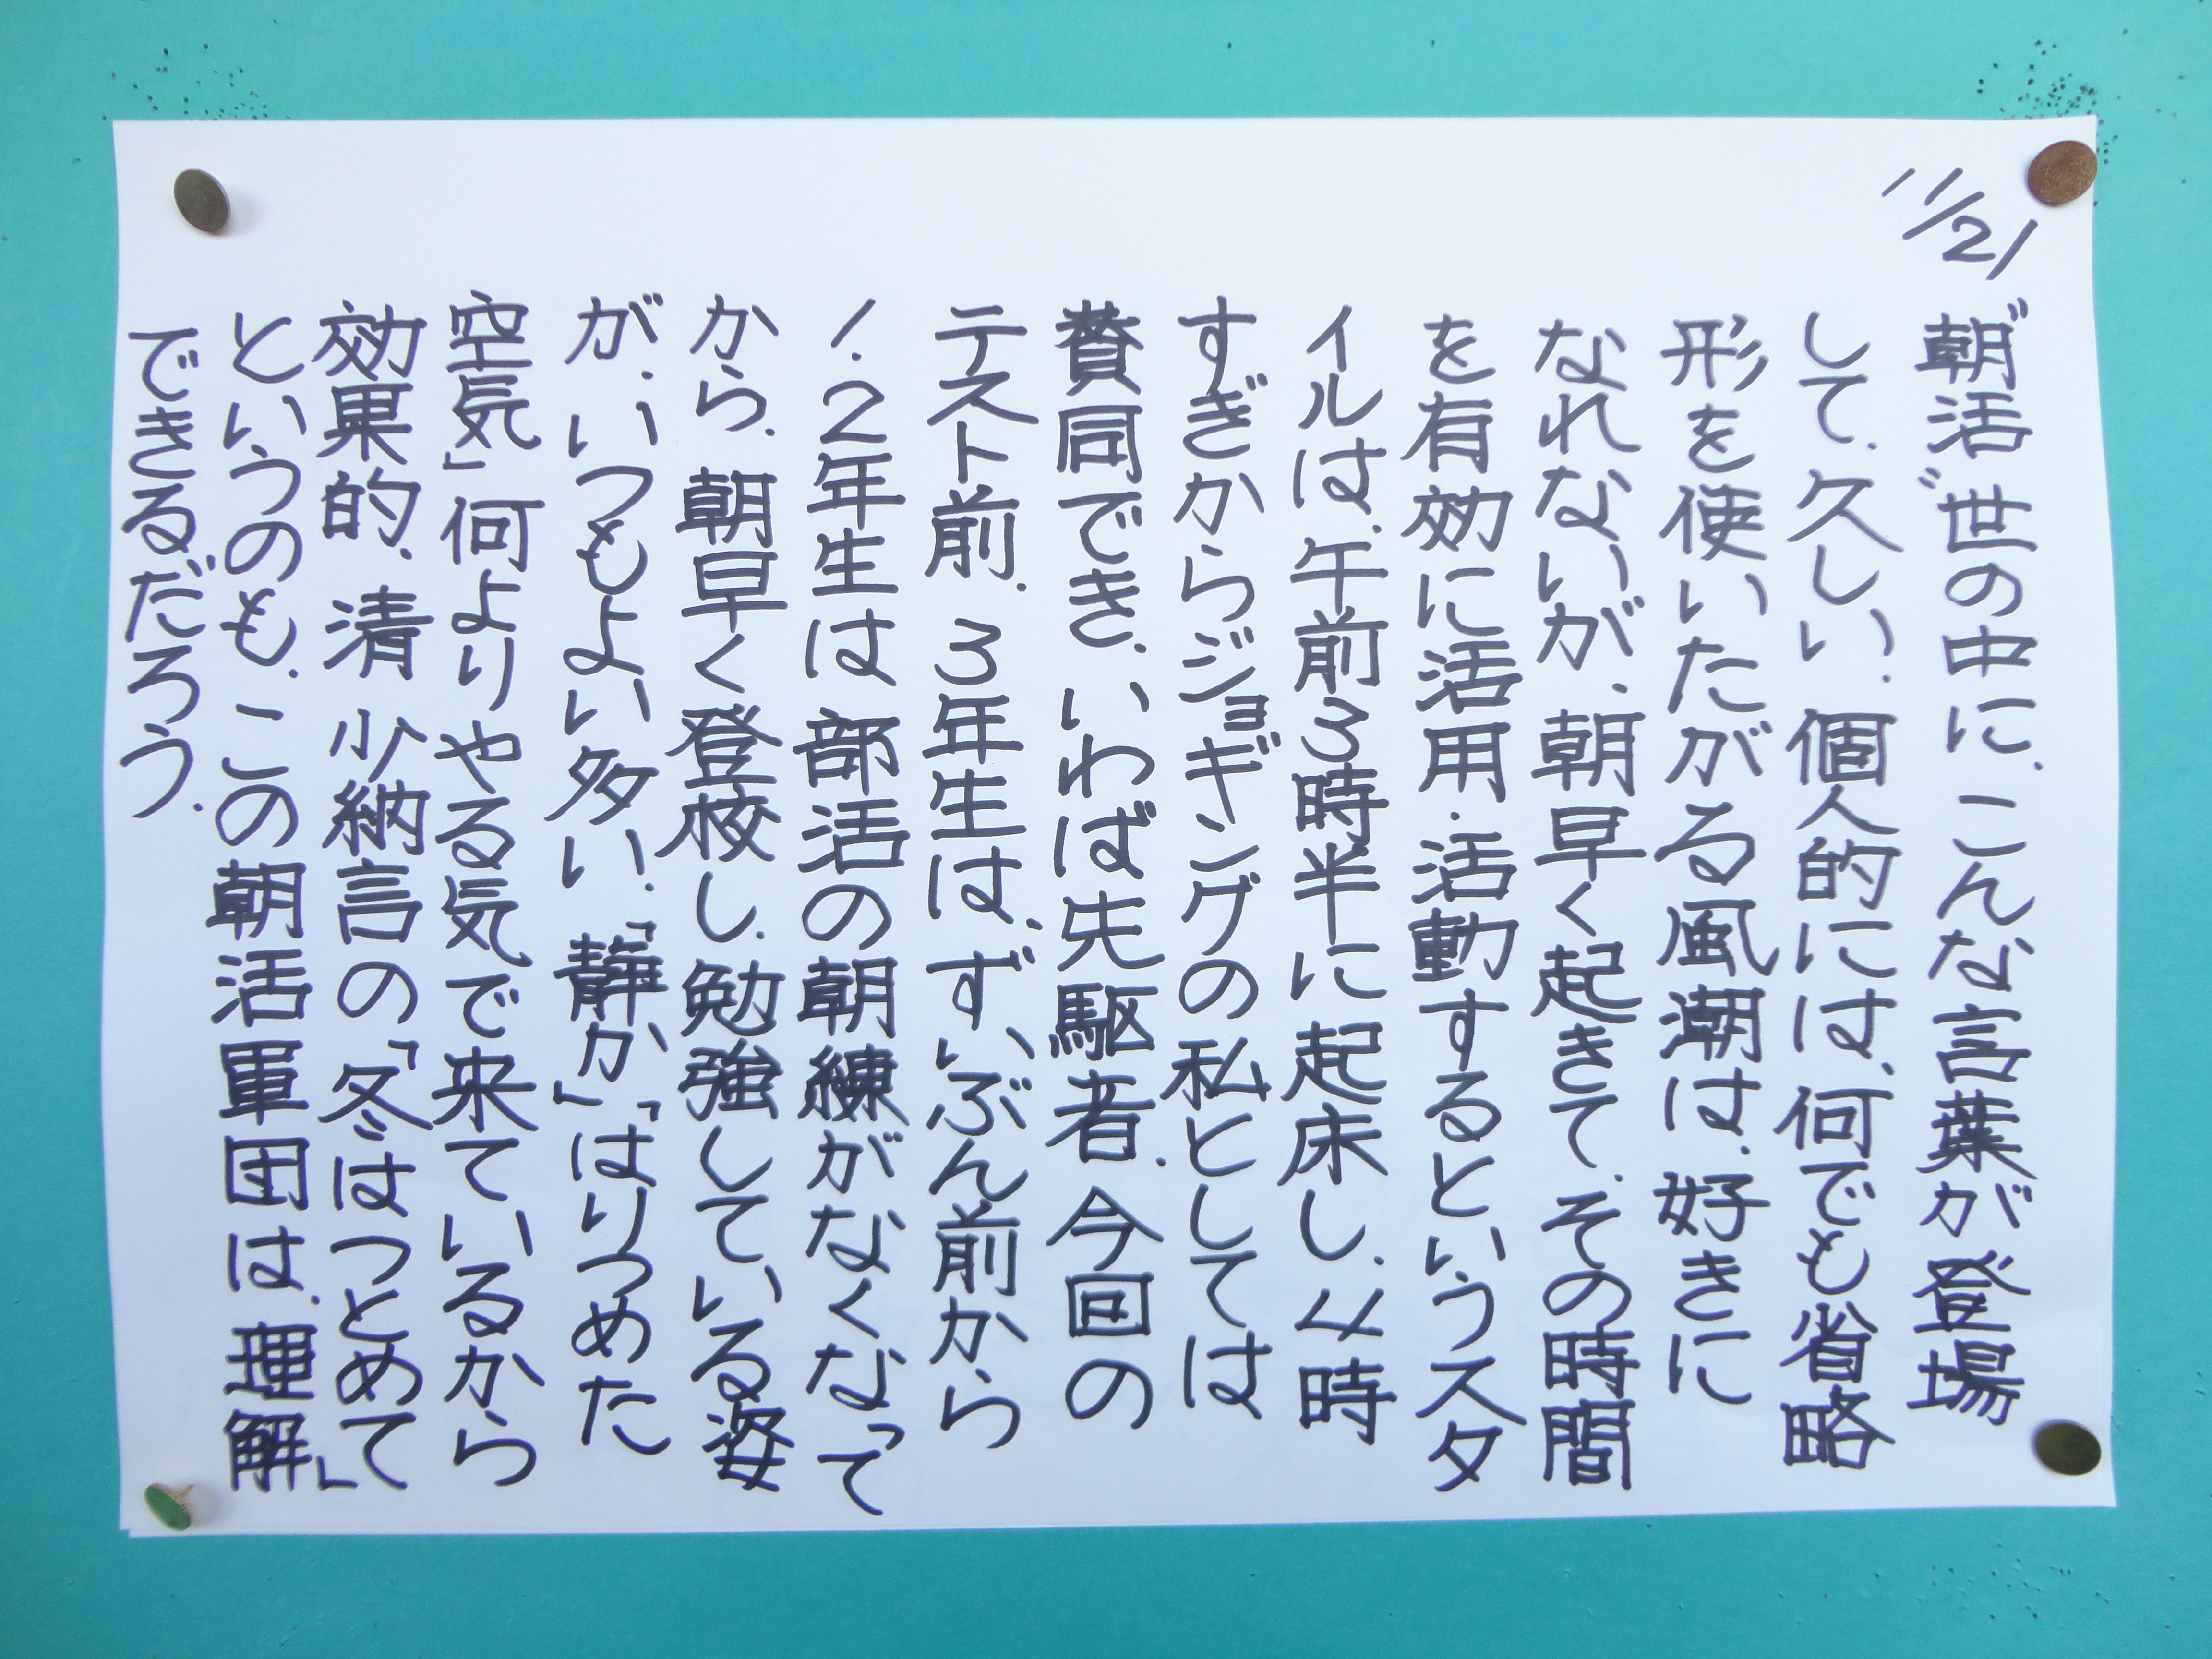 11/21
"朝活"世の中に、こんな言葉が登場
して、久しい。個人的には、何でも省略
形を使いたがる風潮は、好きに
なれないが、朝早く起きて、その時間
を有効に活用・活動するというスタ
イルは、午前3時半に起床し、4時
すぎからジョギングの私としては
賛同でき、いわば先駆者。今回の
テスト前、3年生は、ずいぶん前から
1、2年生は部活の朝練がなくなって
から、朝早く登校し、勉強している姿
が、いつもより多い。「静か」「はりつめた
空気」何よりやる気で来ているから
効果的。清少納言の「冬はつとめて」
というのも、この朝活軍団は、理解
できるだろう。